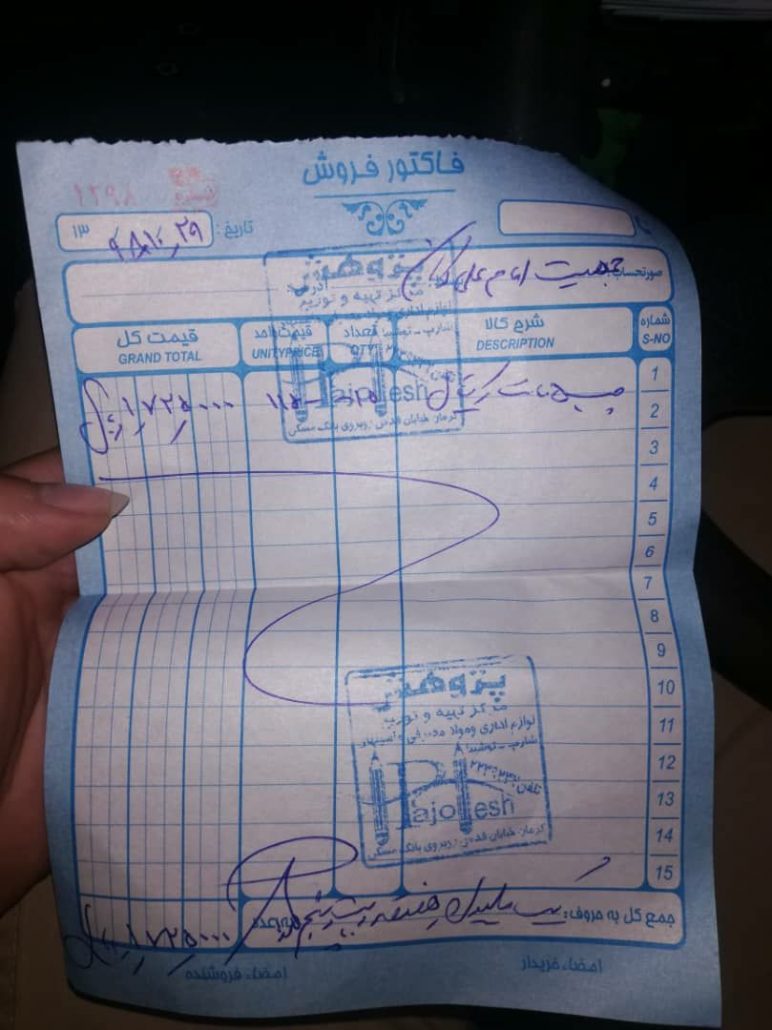 فاکتور فروش
۱۲۹۸
تاریخ: ۹۸/۱۰/۲۹ ۱۳
صورتحساب: جمعیت امام علی
شماره S-NO
شرح کالا DESCRIPTION
تعداد
قیمت واحد UNITYPRICE
قیمت کل GRAND TOTAL
1
۱٬۷۲۵٬۰۰۰
2
3
4
5
6
7
8
9
10
11
12
13
14
15
پژوهش
مرکز تهیه و توزیع
لوازم اداری
Pajohesh
کرمان خیابان قدس روبروی بانک مسکن
پژوهش
مرکز تهیه و توزیع
لوازم اداری و مواد مصرفی
شارپ - توشیبا
تلفن:
Pajohesh
کرمان خیابان قدس روبروی بانک مسکن
جمع کل به حروف: یک میلیون هفتصد بیست پنج
۱٬۷۲۵٬۰۰۰
امضاء خریدار
امضاء فروشنده